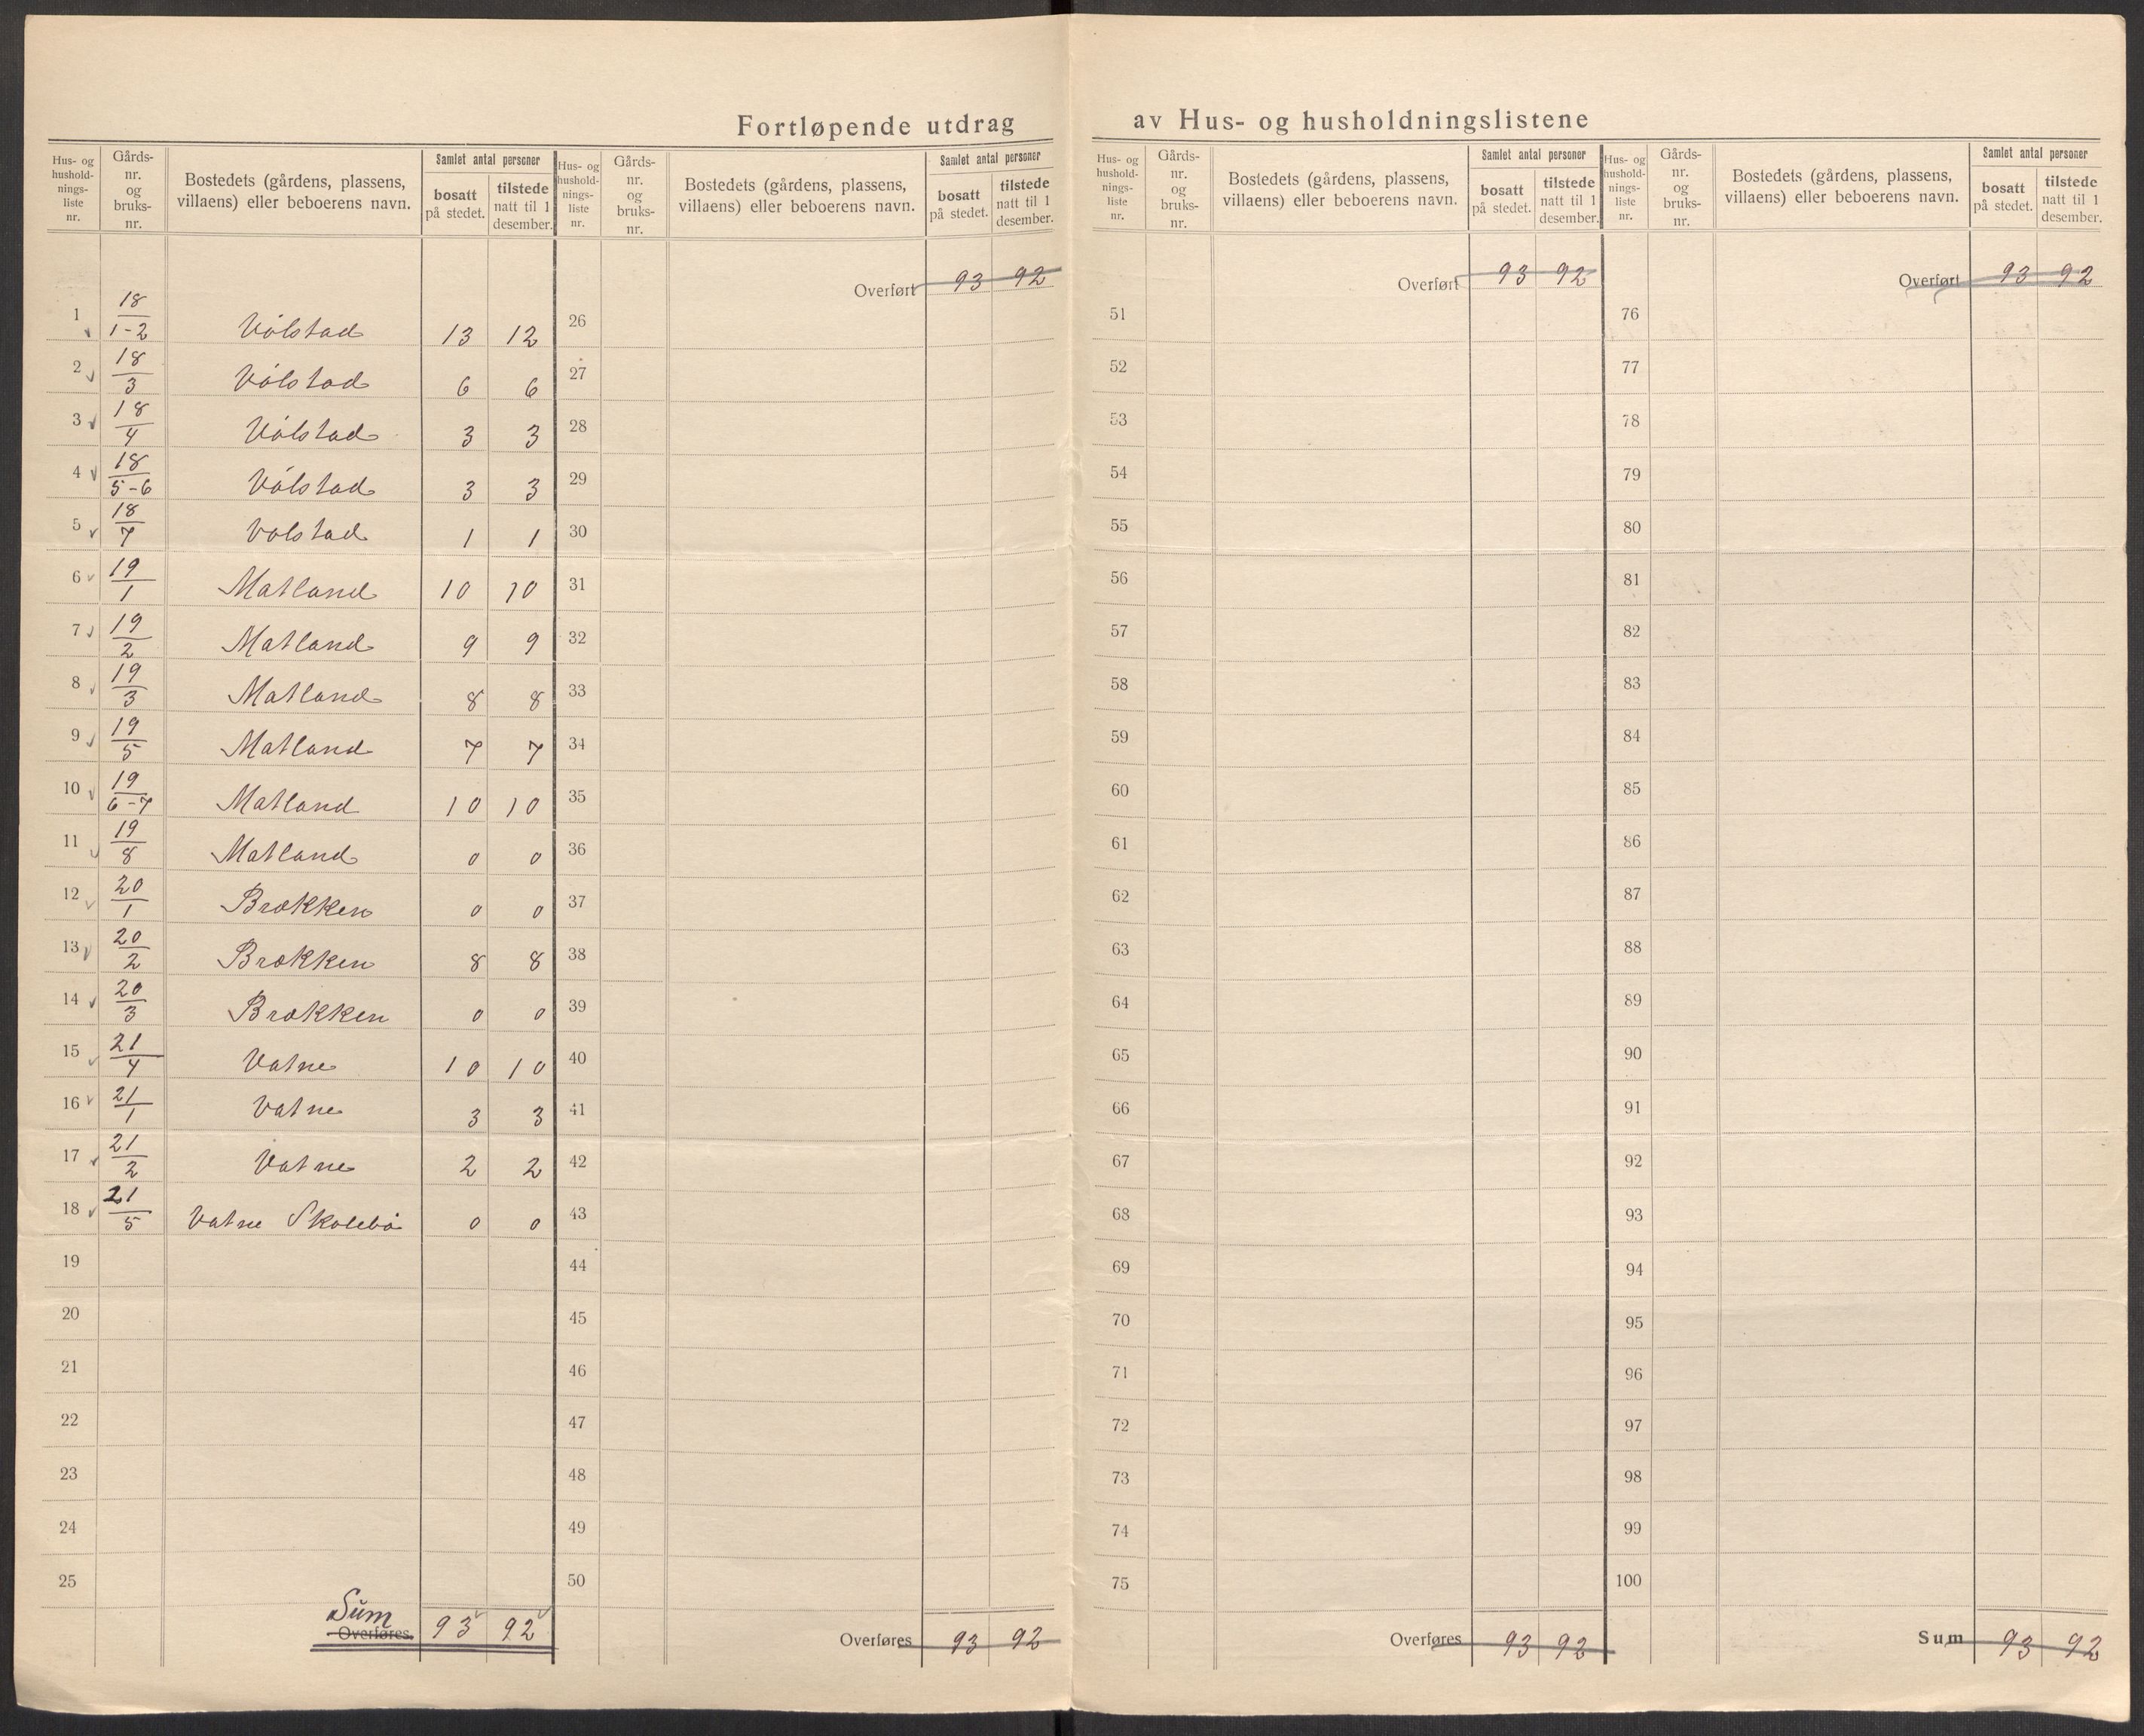 Fortløpende utdrag av Hus- og husholdningslistene
Hus- og husholdnings-liste nr. Gårds-nr. og bruks-nr. Bostedets (gårdens, plassens, villaens) eller beboerens navn. Samlet antal personer bosatt på stedet. tilstede natt til 1 desember.
1 18/1-2 Vólstad 13 12
2 18/3 Vólstad 6 6
3 18/4 Vólstad 3 3
4 18/5-6 Vólstad 3 3
5 18/7 Volstad 1 1
6 19/1 Matland 10 10
7 19/2 Matland 9 9
8 19/3 Matland 8 8
9 19/5 Matland 7 7
10 19/6-7 Matland 10 10
11 19/8 Matland 0 0
12 20/1 Brækken 0 0
13 20/2 Brækken 8 8
14 20/3 Brækken 0 0
15 21/4 Vatne 10 10
16 21/1 Vatne 3 3
17 21/2 Vatne 2 2
18 21/5 Vatne Skolebó 0 0
19
20
21
22
23
24
25
Sum
Overføres 93 92
Hus- og husholdnings-liste nr. Gårds-nr. og bruks-nr. Bostedets (gårdens, plassens, villaens) eller beboerens navn. Samlet antal personer bosatt på stedet. tilstede natt til 1 desember.
Overført 93 92
26
27
28
29
30
31
32
33
34
35
36
37
38
39
40
41
42
43
44
45
46
47
48
49
50
Overføres 93 92
Hus- og husholdnings-liste nr. Gårds-nr. og bruks-nr. Bostedets (gårdens, plassens, villaens) eller beboerens navn. Samlet antal personer bosatt på stedet. tilstede natt til 1 desember.
Overført 93 92
51
52
53
54
55
56
57
58
59
60
61
62
63
64
65
66
67
68
69
70
71
72
73
74
75
Overføres 93 92
Hus- og husholdnings-liste nr. Gårds-nr. og bruks-nr. Bostedets (gårdens, plassens, villaens) eller beboerens navn. Samlet antal personer bosatt på stedet. tilstede natt til 1 desember.
Overført 93 92
76
77
78
79
80
81
82
83
84
85
86
87
88
89
90
91
92
93
94
95
96
97
98
99
100
Sum 93 92